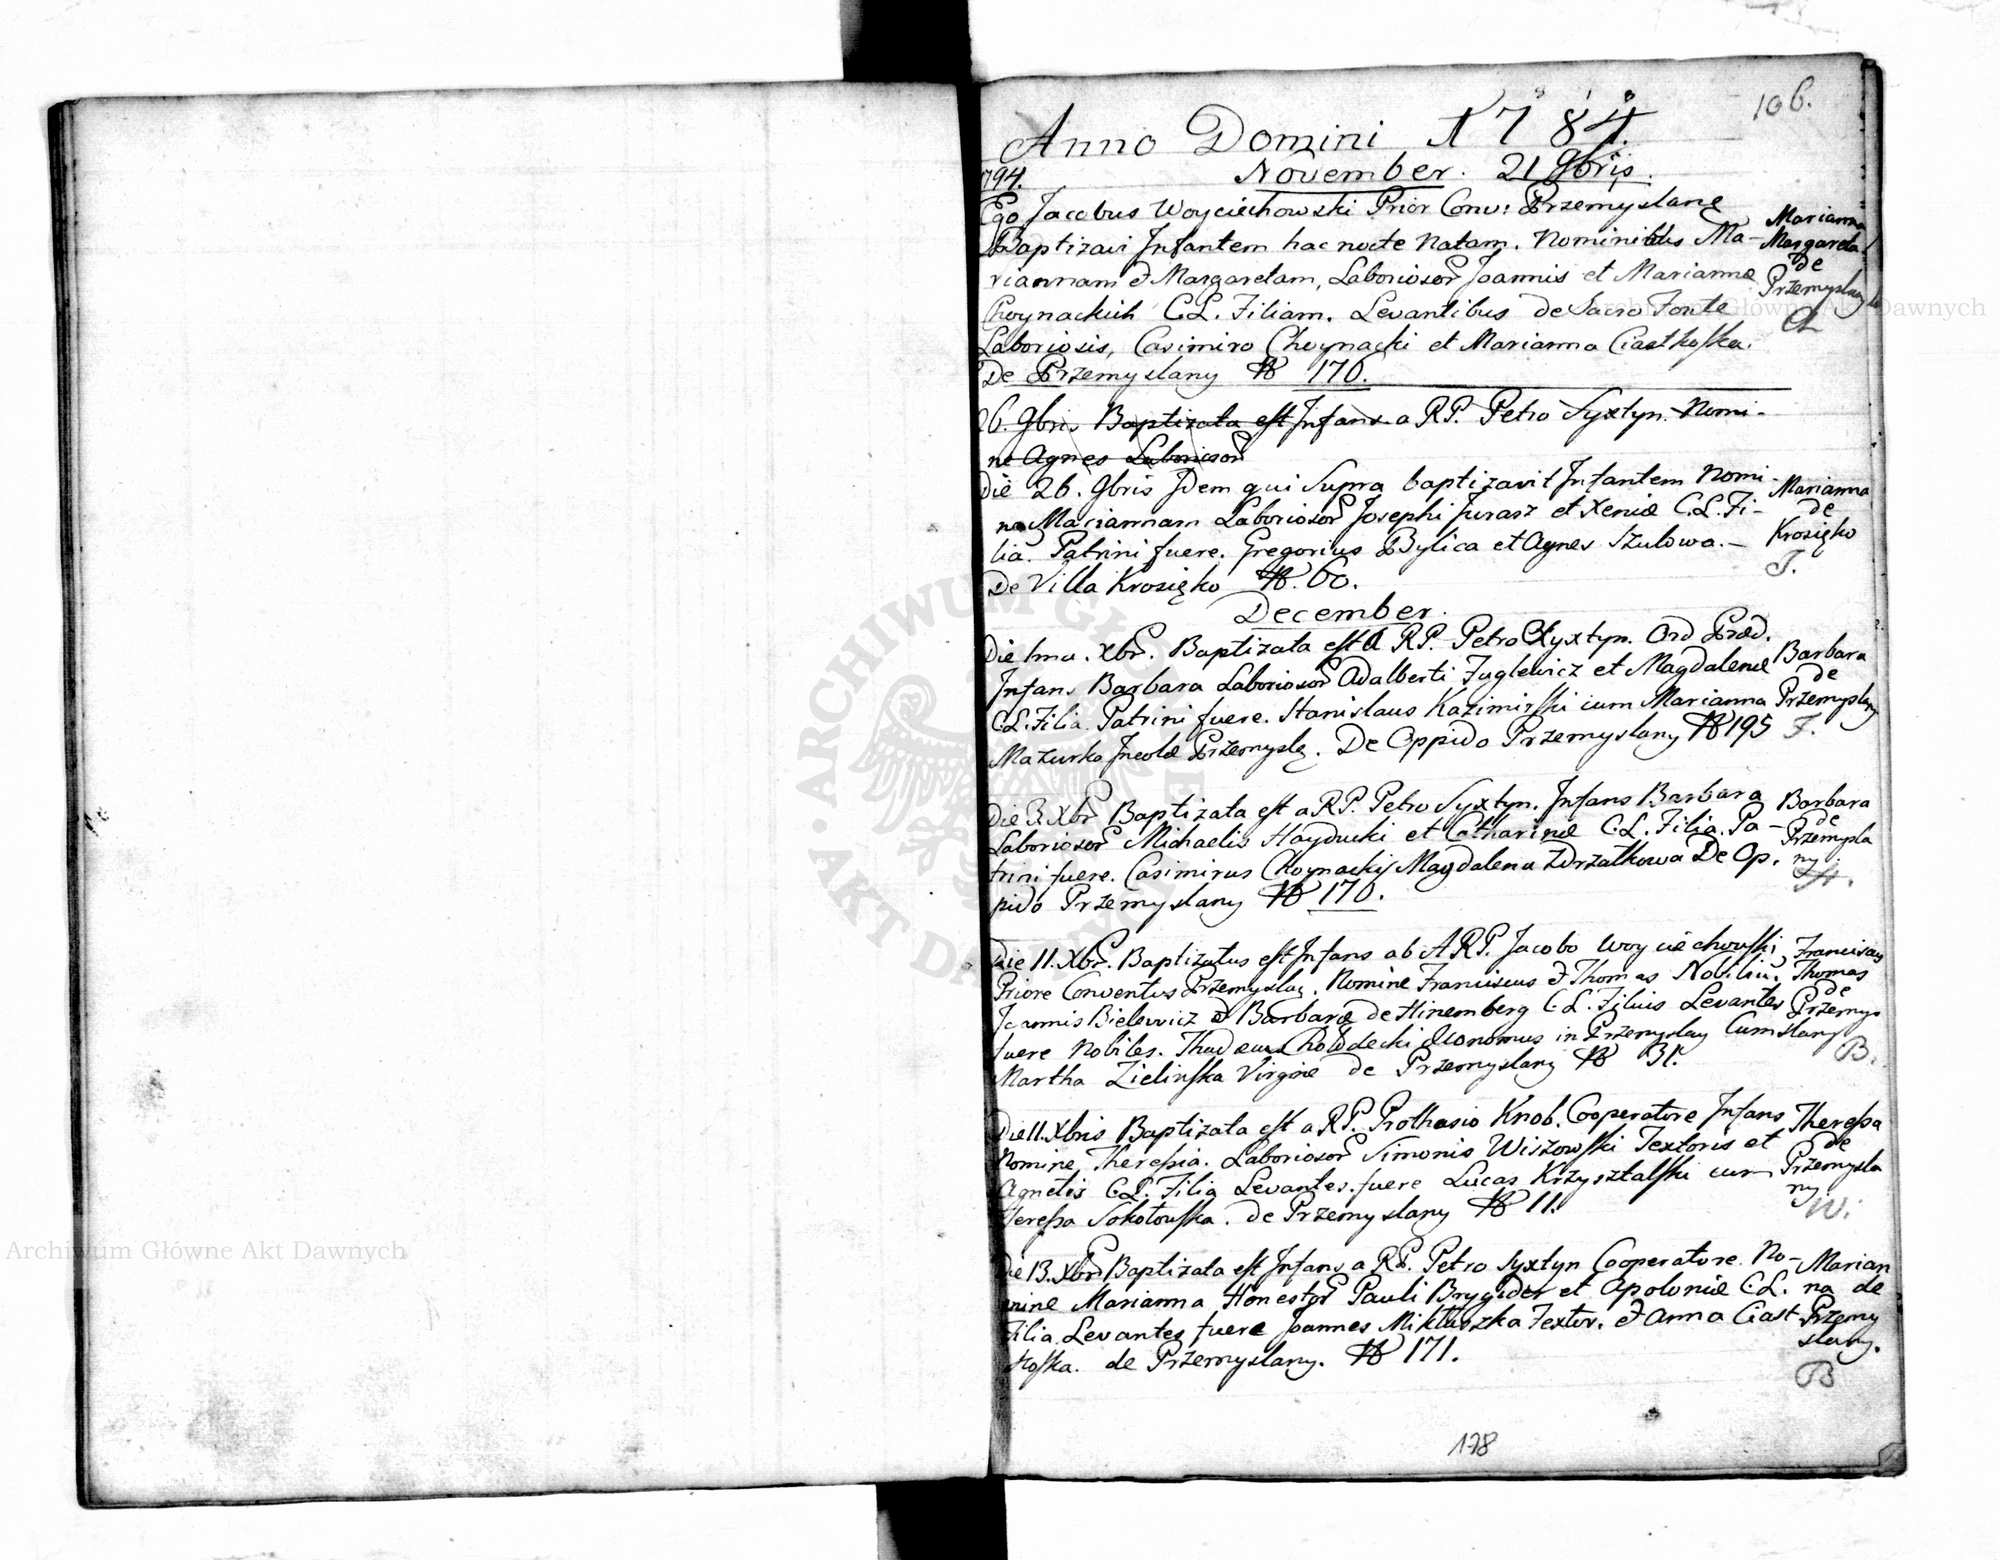 106.
Anno Domini 1784.
1794.
November. 21 9bris.
Ego Jacobus Woyciechowski Prior Conv: Przemyslane
Baptizavi Infantem hac nocte Natam. Nominibus Ma-
riannam & Margaretam, Laborioso℟ Joannis et Marianne
Choynackich C.L. Filiam. Levantibus de Sacro Fonte
Laboriosis, Casimiro Choynacki et Marianna Ciastkoska.
De Przemyslany N 170.
Marianna
Margareta
de
Przemyslany
Ch
26. 9bris Baptizata est Infans a R.P. Petro Syxtyn. Nomi-
ne Agnes Laborioso℟
Die 26. 9bris Idem qui Supra baptizavit Infantem Nomi-
ne Mariannam Laborioso℟ Josephi Jurasz et Xenie C.L. Fi-
lia. Patrini fuere. Gregorius Bylica et Agnes Szulowa. —
De Villa Krosięko N. 60.
Marianna
de
Krosięko
J.
December.
Die 1ma. Xbr. Baptizata est a R.P. Petro Syxtyn. Ord Præd.
Infans Barbara Laborioso℟ Adalberti Fuglewicz et Magdalene
C.L. Filia. Patrini fuere. Stanislaus Kazimirski cum Marianna
Mazurka Incolæ Przemysla. De Oppido Przemyslany N 195
Barbara
de
Przemyslany
F.
Die 3. Xbr Baptizata est a R.P. Petro Syxtyn. Infans Barbara
Laborioso℟ Michaelis Hayducki et Catharine C.L. Filia. Pa-
trini fuere. Casimirus Choynacki Magdalena Zdrzałkowa De Op.
pido Przemyslany N 170.
Barbara
de
Przemysla
ny.
H.
Die 11. Xbr. Baptizatus est Infans ab A.R.P. Jacobo Woyciechowski
Priore Conventus Przemyslaę. Nomine Franciscus & Thomas Nobiliu.
Joannis Bielewicz & Barbaræ de Hinemberg C.L. Filius Levantes
fuere Nobiles. Thadeus Chołodecki Œconomus in Przemyslany Cum
Martha Zielinska Virgine de Przemyslany N 31.
Franciscus
Thomas
De
Przemys
slany
B.
Die 11. Xbris Baptizata est a R.P. Prothasio Knob. Cooperatore Infans
Nomine, Theressia. Laborioso℟ Simonis Wiszowski Textoris et
Agnetis C.L. Filia Levantes. fuere Lucas Krzysztalski cum
Teressa Sokołouska. de Przemyslany N 11.
Theressa
de
Przemysla
ny.
W.
Die 13. Xbr Baptizata est Infans a R.P. Petro Syxtyn Cooperatore. No-
mine Marianna Honesto℟ Pauli Brygider et Apolonie C.L.
Filia. Levantes fuere Joannes Miktuszka Textor. & Anna Ciast-
koska. de Przemyslany. N 171.
Marian
na de
Przemy
slany.
B
178
Archiwum Główne Akt Dawnych
Archiwum Główne Akt Dawnych
ARCHIWUM GŁÓWNE
AKT DAWNYCH